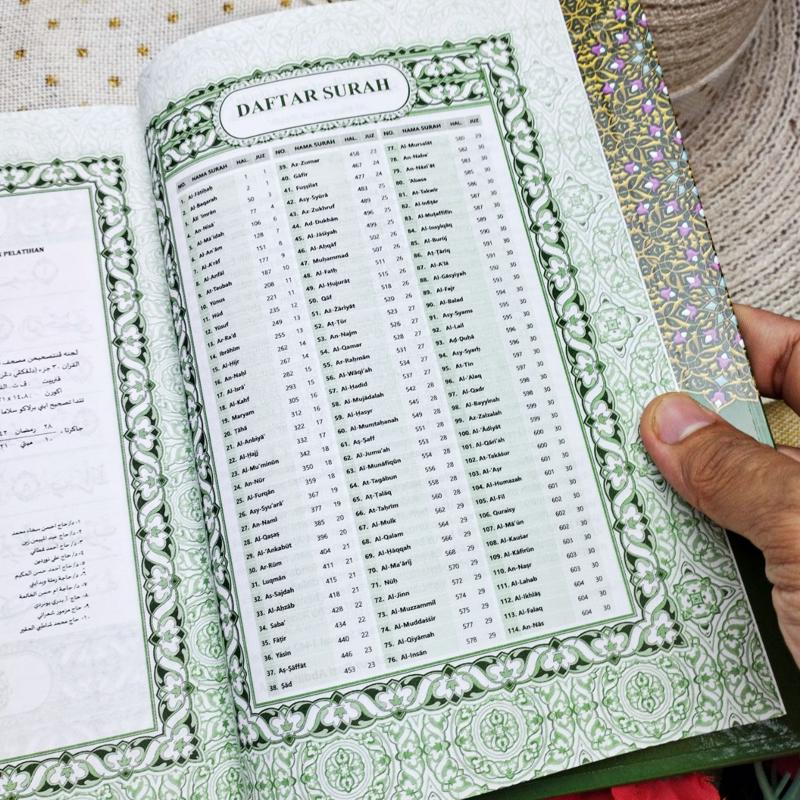 PELATIHAN
DAFTAR SURAH
NO. NAMA SURAH HAL. JUZ
1. Al-Fātiḥah 1 1
2. Al-Baqarah 2 1
3. Āli 'Imrān 50 3
4. An-Nisā' 77 4
5. Al-Mā'idah 106 6
6. Al-An'ām 128 7
7. Al-A'rāf 151 8
8. Al-Anfāl 177 9
9. At-Taubah 187 10
10. Yūnus 208 11
11. Hūd 221 11
12. Yūsuf 235 12
13. Ar-Ra'd 249 13
14. Ibrāhīm 255 13
15. Al-Ḥijr 262 14
16. An-Naḥl 267 14
17. Al-Isrā' 282 15
18. Al-Kahf 293 15
19. Maryam 305 16
20. Ṭāhā 312 16
21. Al-Anbiyā' 322 17
22. Al-Ḥajj 332 17
23. Al-Mu'minūn 342 18
24. An-Nūr 350 18
25. Al-Furqān 359 18
26. Asy-Syu'arā' 367 19
27. An-Naml 377 19
28. Al-Qaṣaṣ 385 20
29. Al-'Ankabūt 396 20
30. Ar-Rūm 404 21
31. Luqmān 411 21
32. As-Sajdah 415 21
33. Al-Aḥzāb 418 21
34. Saba' 428 22
35. Fāṭir 434 22
36. Yāsīn 440 22
37. Aṣ-Ṣāffāt 446 23
38. Ṣād 453 23
NO. NAMA SURAH HAL. JUZ
39. Az-Zumar 458 23
40. Gāfir 467 24
41. Fuṣṣilat 477 24
42. Asy-Syūrā 483 25
43. Az-Zukhruf 489 25
44. Ad-Dukhān 496 25
45. Al-Jāṡiyah 499 25
46. Al-Aḥqāf 502 26
47. Muḥammad 507 26
48. Al-Fatḥ 511 26
49. Al-Ḥujurāt 515 26
50. Qāf 518 26
51. Aż-Żāriyāt 520 26
52. Aṭ-Ṭūr 523 27
53. An-Najm 526 27
54. Al-Qamar 528 27
55. Ar-Raḥmān 531 27
56. Al-Wāqi'ah 534 27
57. Al-Ḥadīd 537 27
58. Al-Mujādalah 542 28
59. Al-Ḥasyr 545 28
60. Al-Mumtaḥanah 549 28
61. Aṣ-Ṣaff 551 28
62. Al-Jumu'ah 553 28
63. Al-Munāfiqūn 554 28
64. At-Tagābun 556 28
65. Aṭ-Ṭalāq 558 28
66. At-Taḥrīm 560 28
67. Al-Mulk 562 29
68. Al-Qalam 564 29
69. Al-Ḥāqqah 566 29
70. Al-Ma'ārij 568 29
71. Nūḥ 570 29
72. Al-Jinn 572 29
73. Al-Muzzammil 574 29
74. Al-Muddaṡṡir 575 29
75. Al-Qiyāmah 577 29
76. Al-Insān 578 29
NO. NAMA SURAH HAL. JUZ
77. Al-Mursalāt 580 29
78. An-Naba' 582 30
79. An-Nāzi'āt 583 30
80. 'Abasa 585 30
81. At-Takwīr 586 30
82. Al-Infiṭār 587 30
83. Al-Muṭaffifīn 587 30
84. Al-Insyiqāq 589 30
85. Al-Burūj 590 30
86. Aṭ-Ṭāriq 591 30
87. Al-A'lā 591 30
88. Al-Gāsyiyah 592 30
89. Al-Fajr 593 30
90. Al-Balad 594 30
91. Asy-Syams 595 30
92. Al-Lail 595 30
93. Aḍ-Ḍuḥā 596 30
94. Asy-Syarḥ 596 30
95. At-Tīn 597 30
96. Al-'Alaq 597 30
97. Al-Qadr 598 30
98. Al-Bayyinah 598 30
99. Az-Zalzalah 599 30
100. Al-'Ādiyāt 599 30
101. Al-Qāri'ah 600 30
102. At-Takāṡur 600 30
103. Al-'Aṣr 601 30
104. Al-Humazah 601 30
105. Al-Fīl 601 30
106. Quraisy 602 30
107. Al-Mā'ūn 602 30
108. Al-Kauṡar 602 30
109. Al-Kāfirūn 603 30
110. An-Naṣr 603 30
111. Al-Lahab 603 30
112. Al-Ikhlāṣ 604 30
113. Al-Falaq 604 30
114. An-Nās 604 30